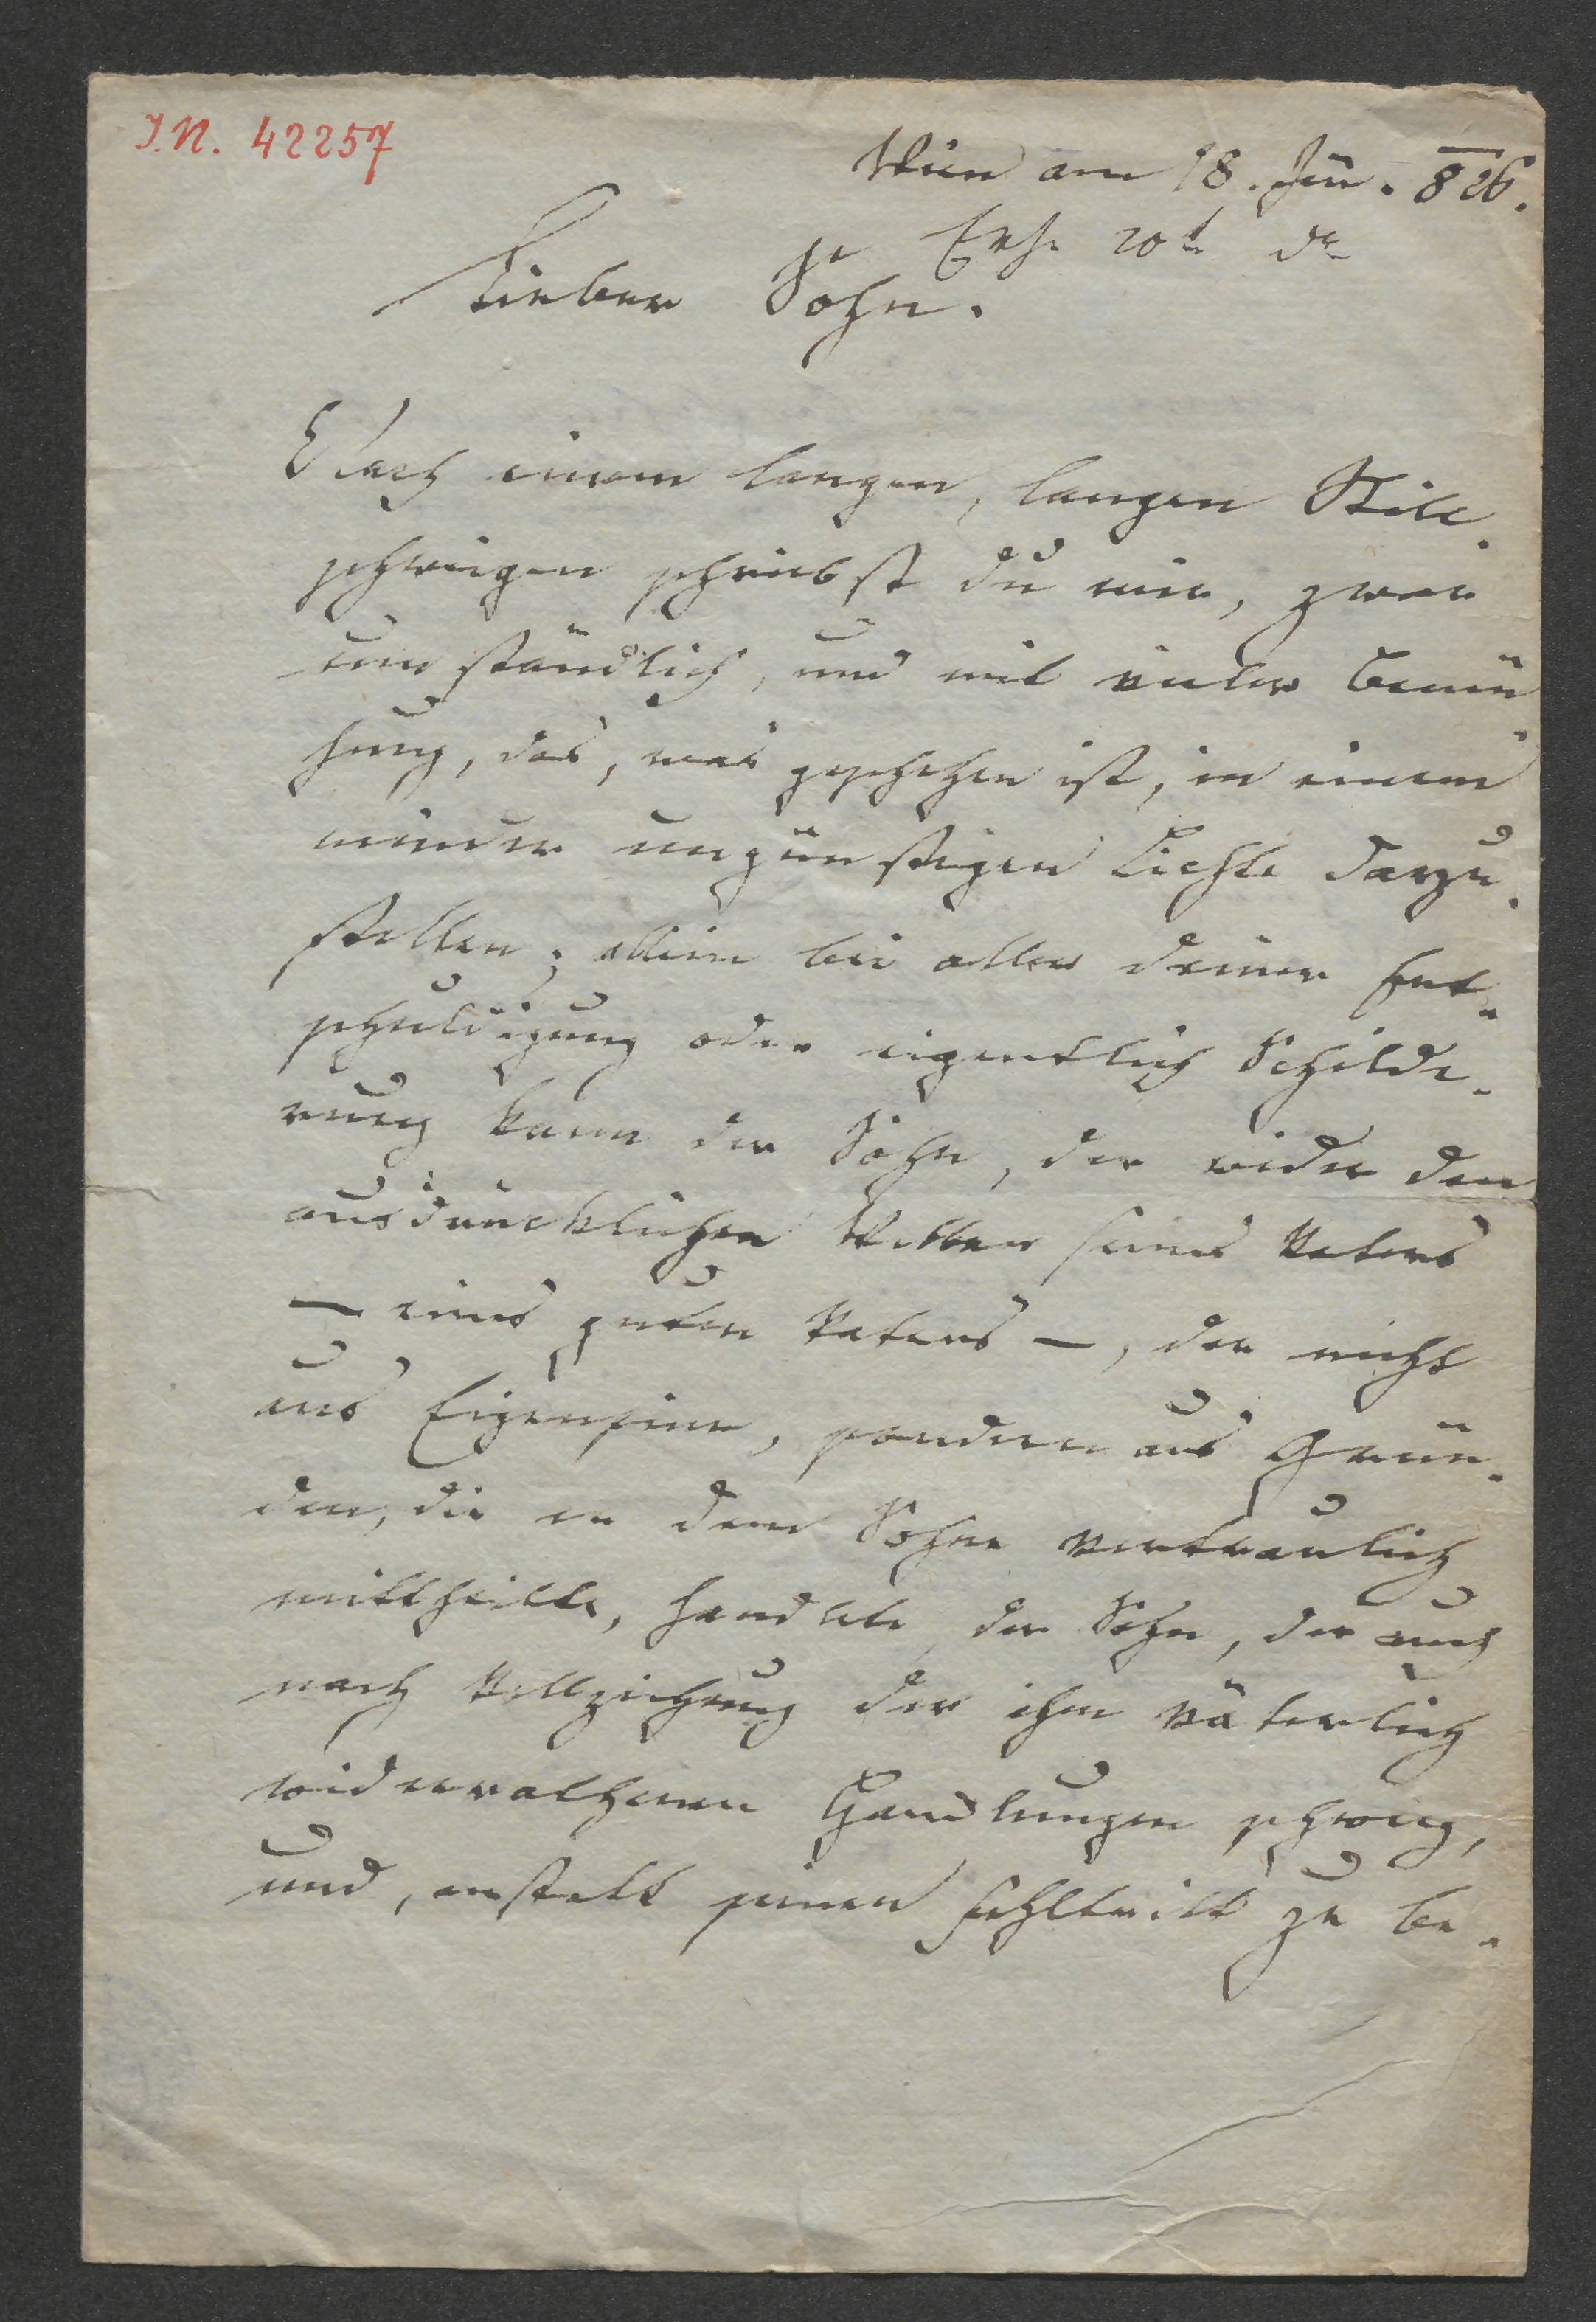 I.N. 42257
Wien am 18. Jän. 826.
Erh. 20t dt
Lieber Sohn.
Nach einem langen, langen Still-
schweigen schriebst du mir, zwar
umständlich, und mit vieler Bemü-
hung, das, was geschehen ist, in einem
minder ungünstigen Lichte darzu-
stellen; allein bei aller deiner Ent-
schuldigung oder eigentlich Schilde-
rung kann der Sohn, der wider den
ausdrücklichen Willen seines Vaters
– eines guten Vaters –, der nicht
aus Eigensinn, sondern aus Grün-
den, die er dem Sohne vertraulich
mittheilte, handelte, der Sohn, der auch
nach Vollziehung der ihm väterlich
widerrathenen Handlungen schwieg,
und, anstatt seinen Fehltritt zu be-